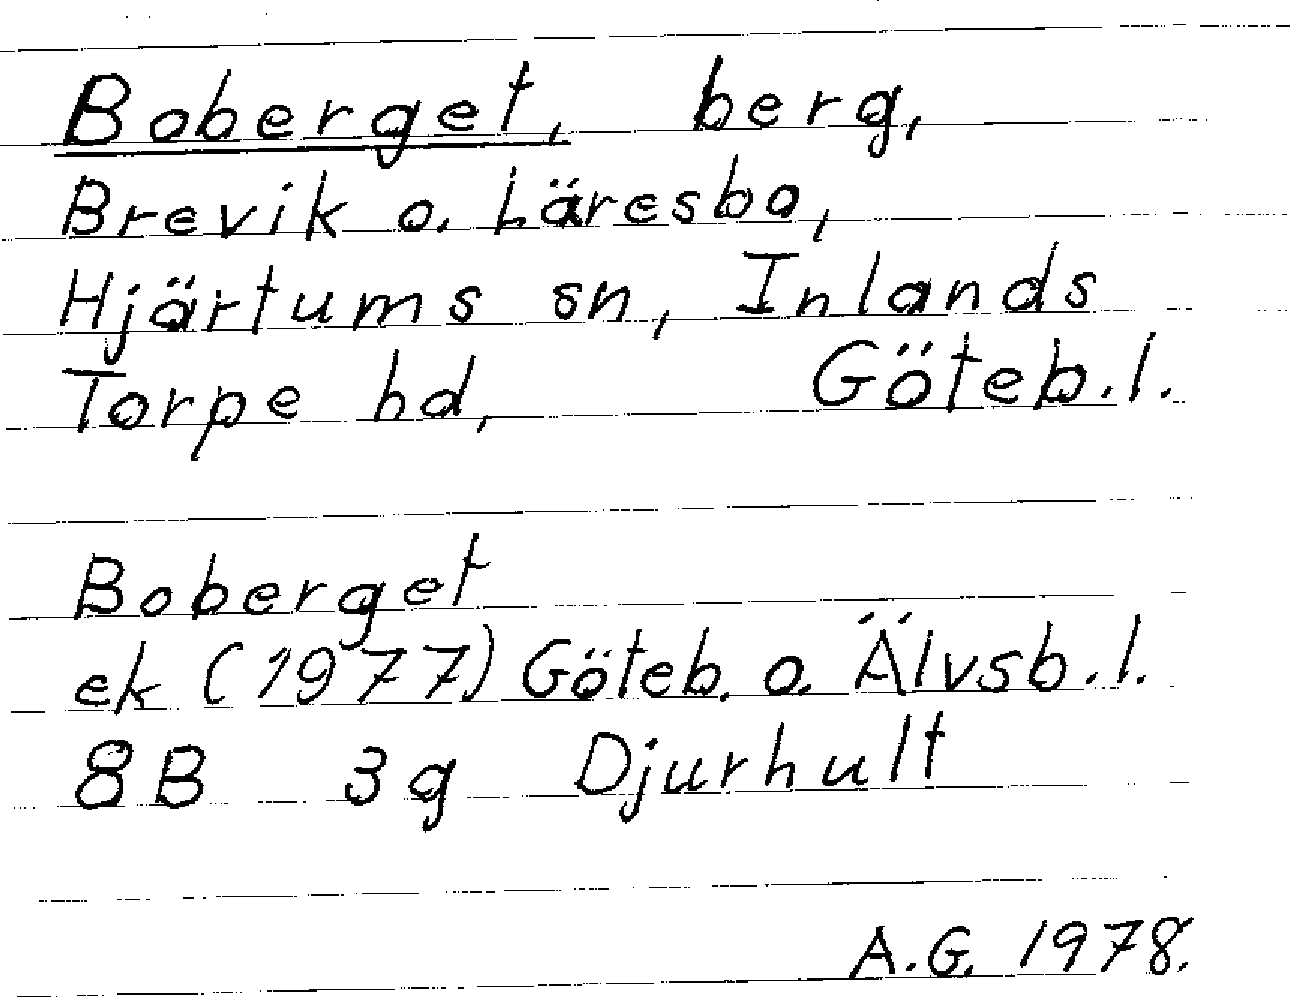 Boberget, berg,
Brevik o. Läresbo,
Hjärtums sn, Inlands
Torpe hd, Göteb.l.
Boberget
ek (1977) Göteb. o. Älvsb.l.
8B 3g Djurhult
A.G. 1978.